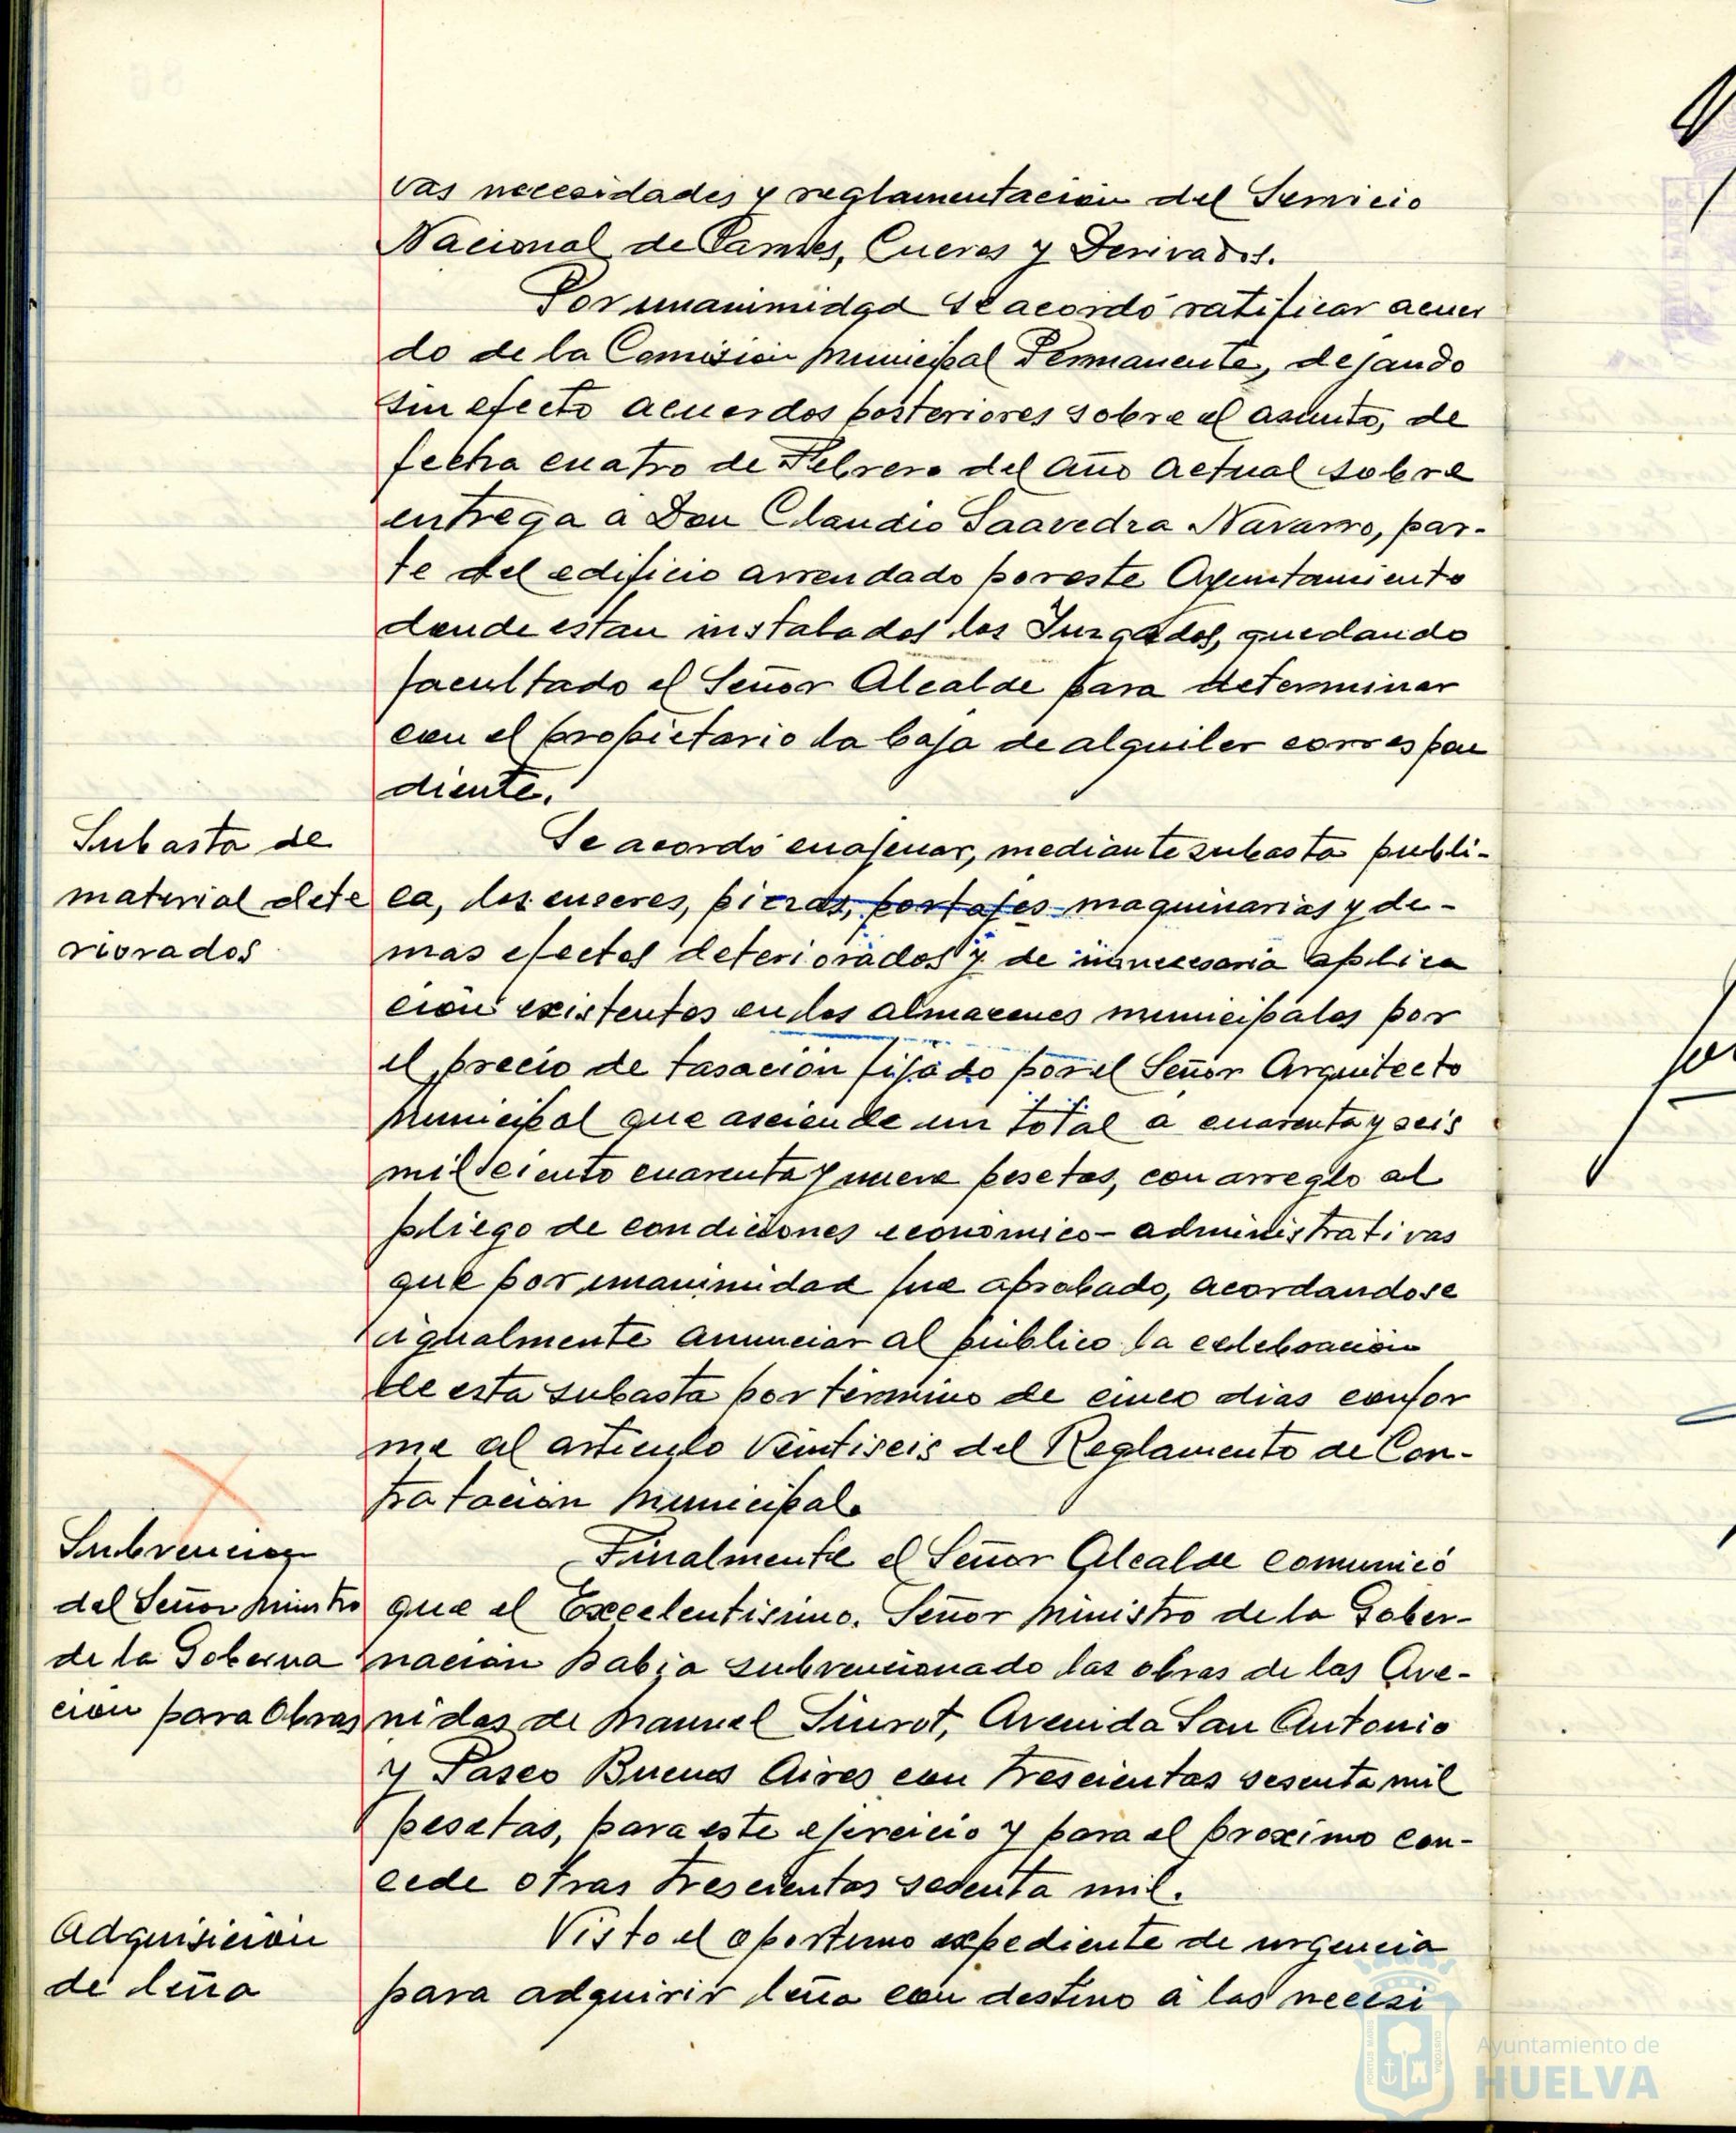 vas necesidades y reglamentación del Servicio
Nacional de Carnes, Cueros y Derivados.
Por unanimidad se acordó ratificar acuer
do de la Comisión Municipal Permanente, dejando
sin efecto acuerdos posteriores sobre el asunto, de
fecha cuatro de Febrero del año actual sobre
entrega a Don Claudio Saavedra Navarro, par-
te del edificio arrendado por este Ayuntamiento
donde estan instalados los Juzgados, quedando
facultado el Señor Alcalde para determinar
con el propietario la baja de alquiler correspon
diente.
Subasta de
material dete
riorados
Se acordó enajenar, mediante subasta publi-
ca, los enseres, piezas, portajes maquinarias y de-
mas efectos deteriorados y de innecesaria aplica
ción existentes en los almacenes municipales por
el precio de tasación fijado por el Señor Arquitecto
Municipal que asciende un total a cuarenta y seis
mil ciento cuarenta y nueve pesetas, con arreglo al
pliego de condiciones económico-administrativas
que por unanimidad fue aprobado, acordandose
igualmente anunciar al público la celebración
de esta subasta por término de cinco dias confor
me al articulo veintiseis del Reglamento de Con-
tratación Municipal.
Subvencion
del Señor Ministro
de la Goberna
ción para Obras
Finalmente el Señor Alcalde comunicó
que el Excelentisimo. Señor Ministro de la Gober-
nación había subvencionado las obras de las Ave-
nidas de Manuel Siurot, Avenida San Antonio
y Paseo Buenos Aires con trescientas sesenta mil
pesetas, para este ejercicio y para el proximo con-
cede otras trescientas sesenta mil.
Adquisición
de leña
Visto el oportuno expediente de urgencia
para adquirir leña con destino a las necesi
Ayuntamiento de
HUELVA